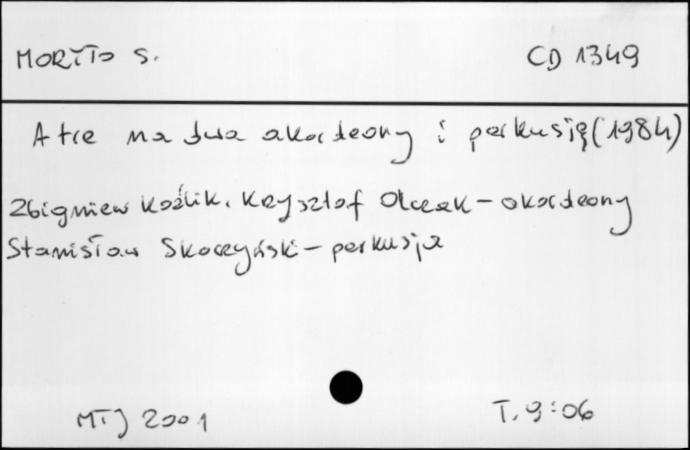 MORYTO S. CD 1349
Atre na dwa akordeony i perkusję (1984)
Zbigniew Koźlik, Krzysztof Olczak - akordeony
Stanisław Skoczyński - perkusja
MTJ 2001 T. 9:06